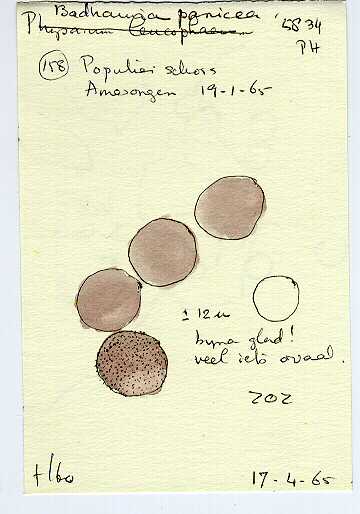 Badhamia panicea
Physarum leucophaeum 5834
PH
158 Populier schors
Amerongen 19-1-65
± 12 u
byna glad!
veel iets ovaal.
202
17-4-65